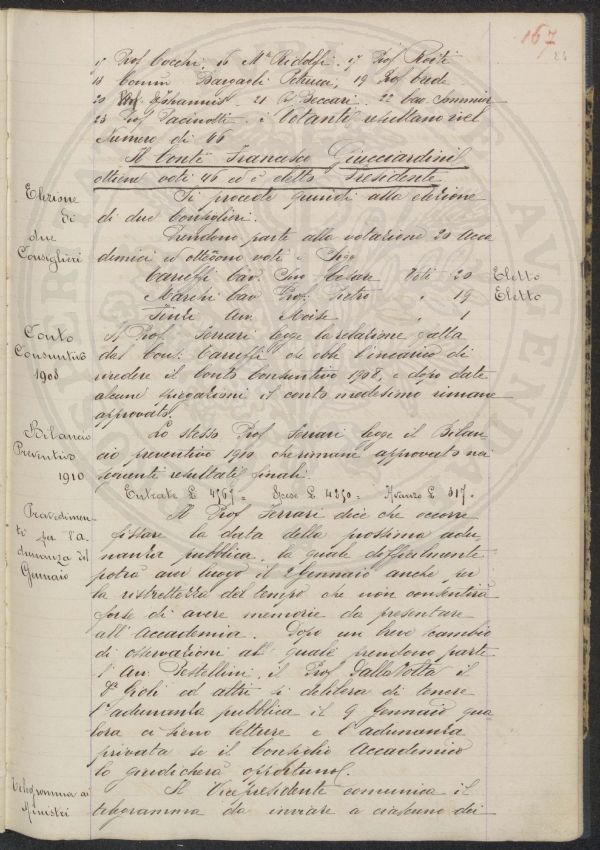 167
15 Prof Cocchi. 16 Mse Ridolfi. 17 Prof Roiti
18 Comm Bargagli Petrucci, 19 Prof
20 Prof. Iohannis. 21 Beccari. 22 Cav. Sommier
23 Prof Pacinotti. i Votanti, resultano nel
Numero di 46
Il Conte Francesco Guicciardini
ottiene voti 46 ed è eletto Presidente
Elezione di due Consiglieri
Si procede quindi alla elezione
di due Consiglieri.
Prendono parte alla votazione 20 Acca
demici ed ottegono voti i Sigi
Caruelli Cav. Cesare Voti 20 Eletto
Marchi Cav Prof. Pietro " 19 Eletto
Avv. " 1
Conto Consuntivo 1908
Il Prof. Ferrari legge la relazione fatta
dal Cons. che ebbe l'incarico di
rivedere il Conto Consuntivo 1908, e dopo date
alcune spiegazioni il conto medesimo rimane
approvato.
Bilancio Preventivo 1910
Lo stesso Prof. Ferrari legge il Bilan
cio preventivo 1910 che rimane approvato nei
seguenti resultati finali.
Entrate £ 4767= Spese £ 4250= Avanzo £ 517.
Provvedimen-
ti per l'a-
dunanza del
Gennaio
Il Prof Ferrari dice che occorre
fissare la data della prossima adu
nanza pubblica, la quale difficilmente
potrà aver luogo il 2 Gennaio anche per
la ristrettezza del tempo che non consentirà
forse di avere memorie da presentare
all'Accademia. Dopo un breve cambio
di osservazioni alle quale prendono parte
l'Avv. Pestellini, il Prof Dalla Volta il
ed altri si delibera di tenere
l'adunanza pubblica il 9 Gennaio qua
lora ci sieno letture e l'adunanza
privata se il Consiglio Accademico
lo giudicherà opportuno.
Telegramma ai
Ministri
Il Vicepresidente comunica il
telegramma da inviare a ciascuno dei